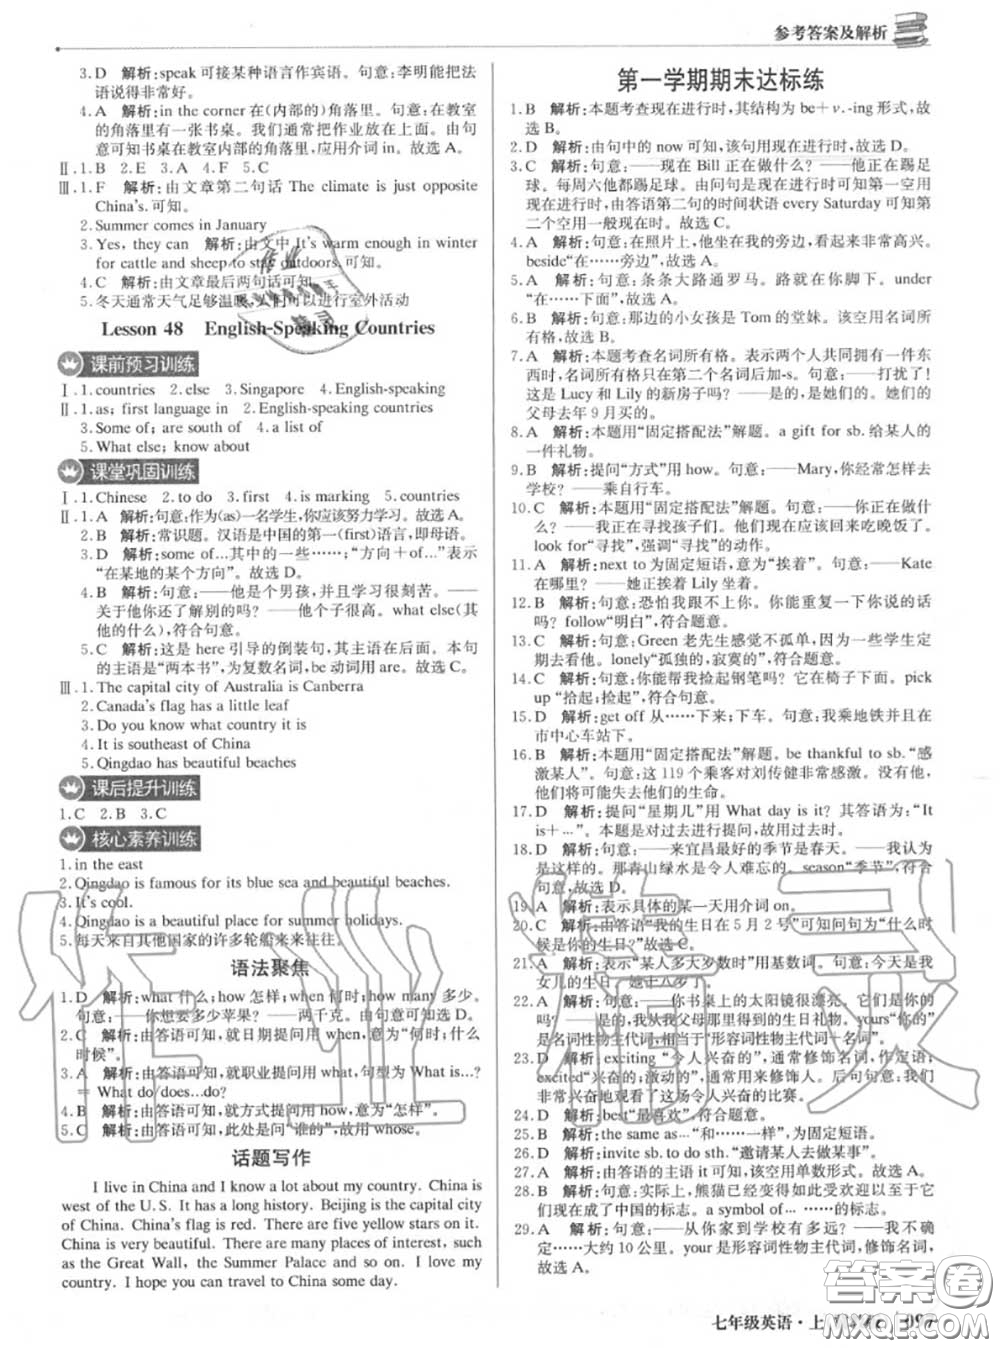 参考答案及解析
3. D 解析:speak可接某种语言作宾语。句意:李明能把法
语说得非常好。
4. A 解析:in the corner在(内部的)角落里。句意:在教室
的角落里有一张书桌。我们通常把作业放在上面。由句
意可知书桌在教室内部的角落里,应用介词in。故选A。
Ⅱ. 1. B 2. E 3. A 4. F 5. C
Ⅲ. 1. F 解析:由文章第二句话 The climate is just opposite
China's. 可知。
2. Summer comes in January
3. Yes, they can 解析:由文中It's warm enough in winter
for cattle and sheep to stay outdoors. 可知。
4. C 解析:由文章最后两句话可知。
5. 冬天通常天气足够温暖,人们可以进行室外活动
Lesson 48 English-Speaking Countries
课前预习训练
Ⅰ. 1. countries 2. else 3. Singapore 4. English-speaking
Ⅱ. 1. as; first language in 2. English-speaking countries
3. Some of; are south of 4. a list of
5. What else; know about
课堂巩固训练
Ⅰ. 1. Chinese 2. to do 3. first 4. is marking 5. countries
Ⅱ. 1. A 解析:句意:作为(as)一名学生,你应该努力学习。故选A。
2. B 解析:常识题。汉语是中国的第一(first)语言,即母语。
3. D 解析:some of…其中的一些……;“方向+of…”表示
“在某地的某个方向”。故选D。
4. B 解析:句意:——他是个男孩,并且学习很刻苦。——
关于他你还了解别的吗?——他个子很高。what else(其
他的什么),符合句意。
5. C 解析:这是here引导的倒装句,其主语在后面。本句
的主语是“两本书”,为复数名词,be动词用are。故选C。
Ⅲ. 1. The capital city of Australia is Canberra
2. Canada's flag has a little leaf
3. Do you know what country it is
4. It is southeast of China
5. Qingdao has beautiful beaches
课后提升训练
1. C 2. B 3. C
核心素养训练
1. in the east
2. Qingdao is famous for its blue sea and beautiful beaches.
3. It's cool.
4. Qingdao is a beautiful place for summer holidays.
5. 每天来自其他国家的许多轮船来来往往。
语法聚焦
1. D 解析:what什么;how怎样;when何时;how many多少。
句意:——你想要多少苹果?——两千克。由句意可知选D。
2. C 解析:由答语可知,就日期提问用when,意为“何时;什么
时候”。
3. A 解析:由答语可知,就职业提问用what,句型为What is…?
= What do/does…do?
4. B 解析:由答语可知,就方式提问用how,意为“怎样”。
5. C 解析:由答语可知,此处是问“谁的”,故用whose。
话题写作
I live in China and I know a lot about my country. China is
west of the U. S. It has a long history. Beijing is the capital city
of China. China's flag is red. There are five yellow stars on it.
China is very beautiful. There are many places of interest, such
as the Great Wall, the Summer Palace and so on. I love my
country. I hope you can travel to China some day.
第一学期期末达标练
1. B 解析:本题考查现在进行时,其结构为be+v.-ing形式,故
选B。
2. D 解析:由句中的now可知,该句用现在进行时,故选D。
3. C 解析:句意:——现在Bill正在做什么?——他正在踢足
球。每周六他都踢足球。由问句是现在进行时可知第一空用
现在进行时,由答语第二句的时间状语every Saturday可知第
二个空用一般现在时。故选C。
4. A 解析:句意:在照片上,他坐在我的旁边,看起来非常高兴。
beside“在……旁边”,故选A。
5. A 解析:句意:条条大路通罗马。路就在你脚下。under
“在……下面”,故选A。
6. B 解析:句意:那边的小女孩是Tom的堂妹。该空用名词所
有格,故选B。
7. A 解析:本题考查名词所有格。表示两个人共同拥有一件东
西时,名词所有格只在第二个名词后加-s。句意:——打扰了!
这是Lucy和Lily的新房子吗?——是的,是她们的。她们的
父母去年9月买的。
8. A 解析:本题用“固定搭配法”解题。a gift for sb. 给某人的
一件礼物。
9. B 解析:提问“方式”用how。句意:——Mary,你经常怎样去
学校?——乘自行车。
10. C 解析:本题用“固定搭配法”解题。句意:——你正在做什
么?——我正在寻找孩子们。他们现在应该回来吃晚饭了。
look for“寻找”,强调“寻找”的动作。
11. A 解析:next to为固定短语,意为“挨着”。句意:——Kate
在哪里?——她正挨着Lily坐着。
12. B 解析:句意:恐怕我跟不上你。你能重复一下你说的话
吗?follow“明白”,符合题意。
13. C 解析:句意:Green老先生感觉不孤单,因为一些学生定
期去看他。lonely“孤独的,寂寞的”,符合题意。
14. C 解析:句意:你能帮我捡起钢笔吗?它在椅子下面。pick
up “拾起;捡起”,符合句意。
15. D 解析:get off 从……下来;下车。句意:我乘地铁并且在
市中心车站下。
16. B 解析:本题用“固定搭配法”解题。be thankful to sb. “感
激某人”。句意:这119个乘客对刘传健非常感激。没有他,
他们将会失去他们的生命。
17. D 解析:提问“星期几”用What day is it? 其答语为:“It
is+…”。本题是对过去进行提问,故用过去时。
18. D 解析:句意:——来宜昌最好的季节是春天。——我认为
是的。那青山绿水是令人难忘的。season“季节”,符合
句意,故选D。
19. A 解析:表示具体的某一天用介词on。
20. C 解析:由答语“我的生日在5月2号”可知问句为“什么时
候是你的生日?”故选C。
21. A 解析:表示“某人多大岁数时”用基数词。句意:今天是我
女儿的生日。她十八岁了。
22. A 解析:句意:——你书桌上的太阳镜很漂亮。它们是你的
吗?——是的,我从我父母那里得到的生日礼物。yours“你的”
是名词性物主代词,相当于“形容词性物主代词+名词”。
23. D 解析:exciting “令人兴奋的”,通常修饰名词,作定语;
excited“兴奋的;激动的”,通常用来修饰人。后句句意:我们
非常兴奋地观看了这场令人兴奋的比赛。
24. D 解析:best“最喜欢”,符合题意。
25. B 解析:the same as…“和……一样”,为固定短语。
26. D 解析:invite sb. to do sth. “邀请某人去做某事”。
27. A 解析:由答语的主语it可知,该空用单数形式。故选A。
28. B 解析:句意:实际上,熊猫已经变得如此受欢迎以至于它
们现在成了中国的标志。a symbol of… ……的标志。
29. A 解析:句意:——从你家到学校有多远?——我不确
定……大约10公里。your是形容词性物主代词,修饰名词,
故选A。
七年级英语·上
答案卷
作业精灵